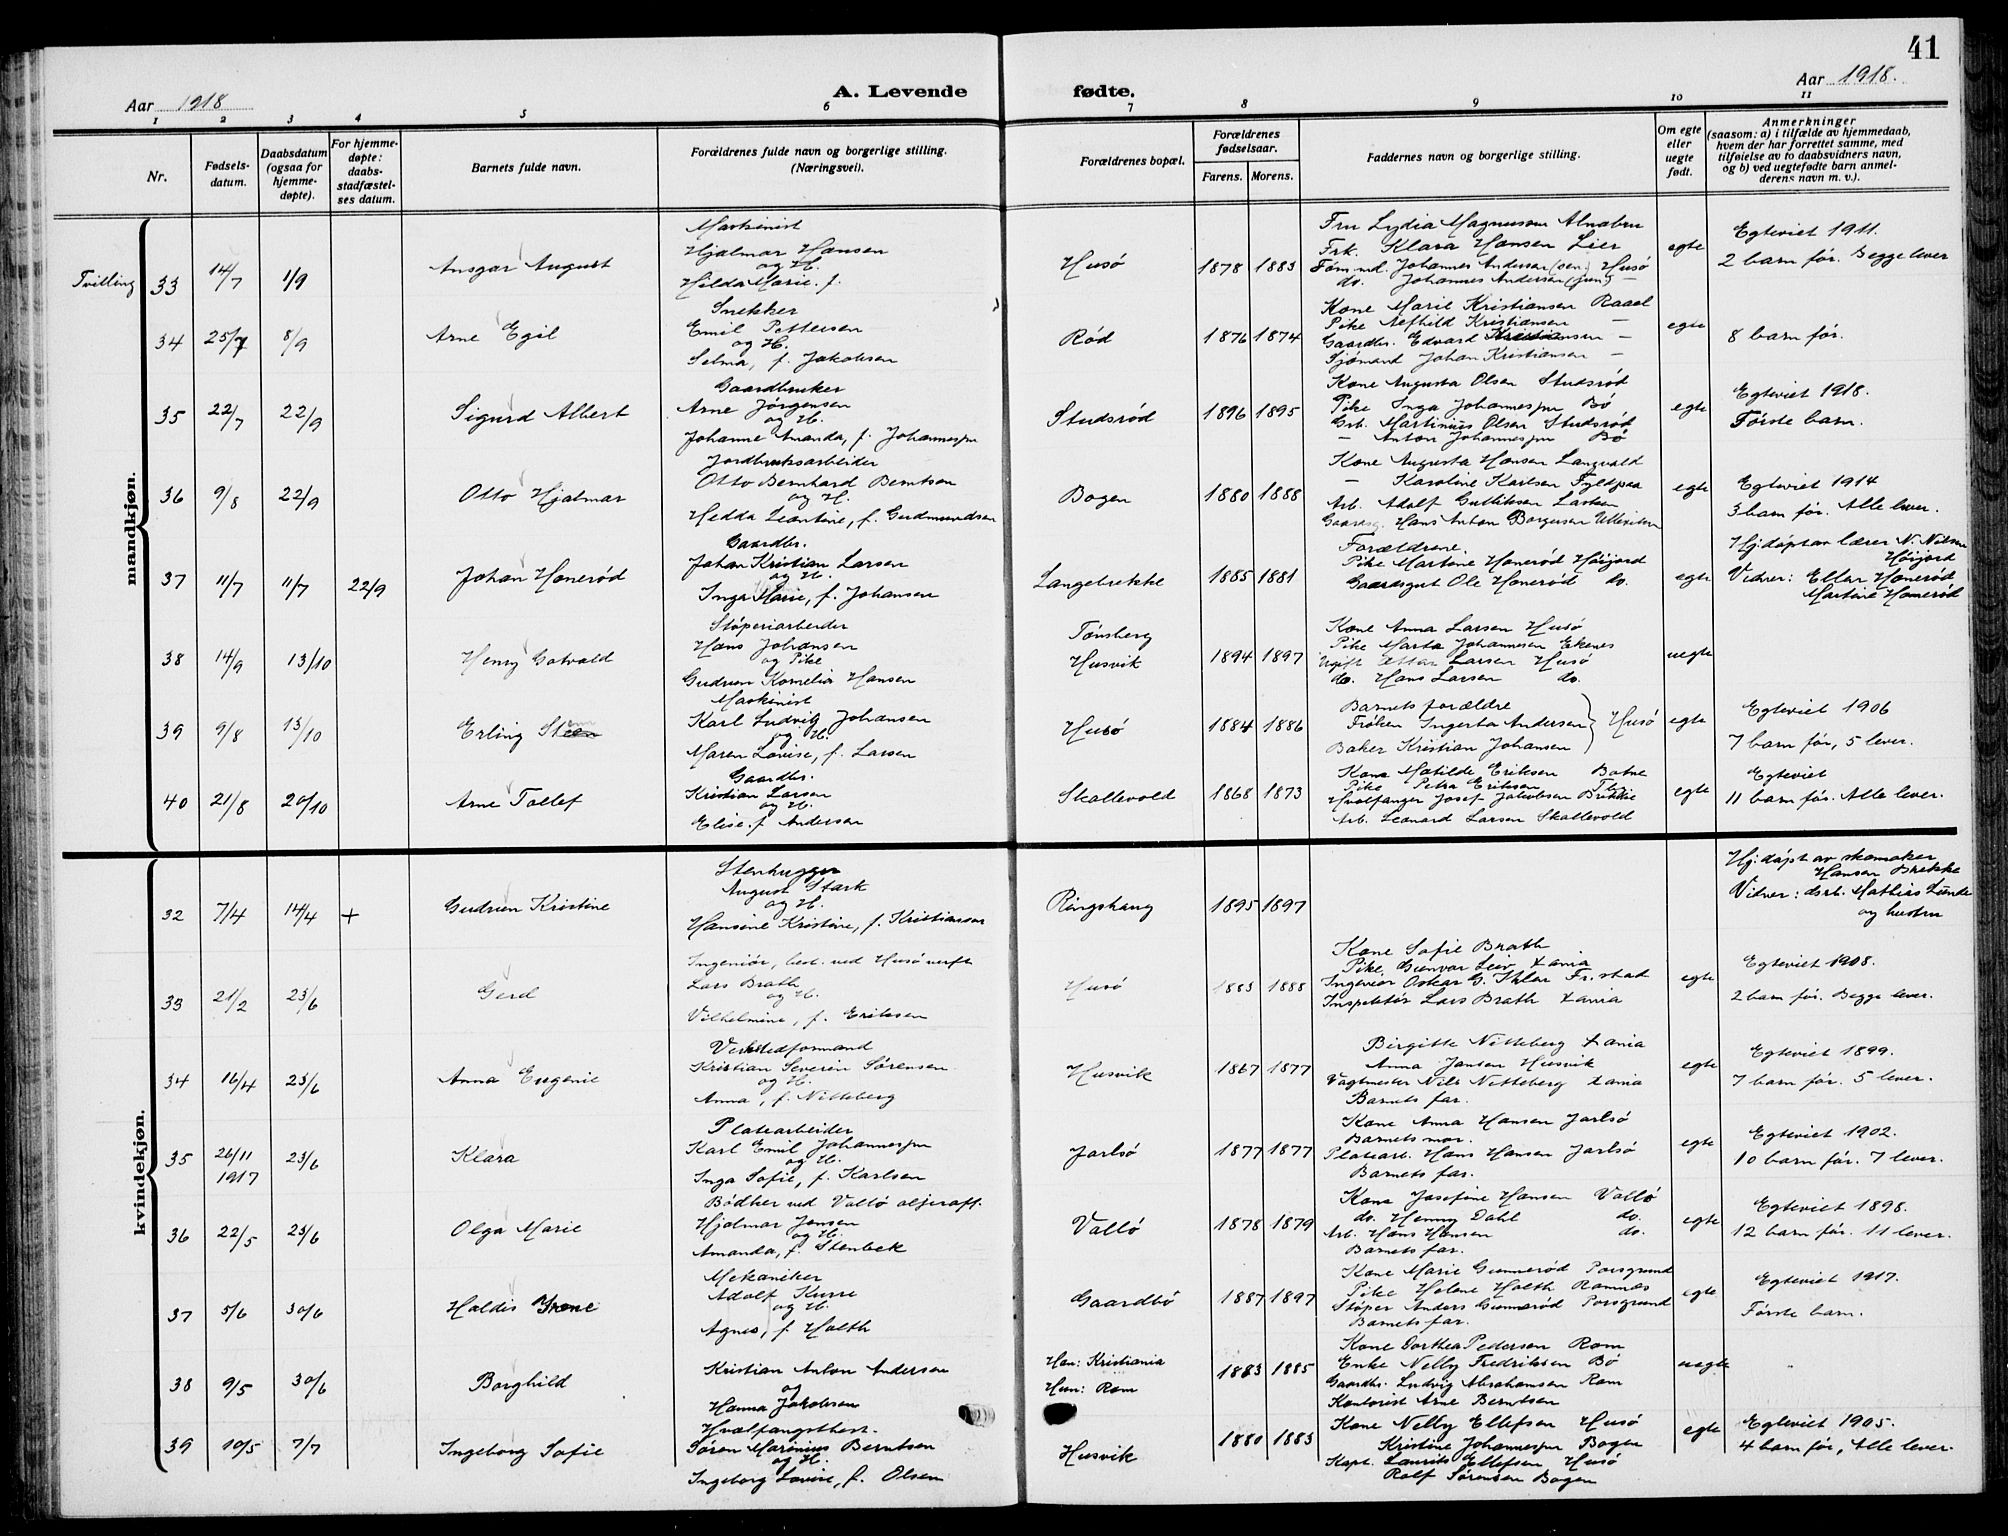 41
Aar 1918
A. Levende fødte.
Aar 1918.
1 2 3 4 5 6 7 8 9 10 11
Nr.
Fødsels-
datum.
Daabsdatum
(ogsaa for
hjemme-
døpte).
For hjemme-
døpte:
daabs-
stadfæstel-
ses datum.
Barnets fulde navn.
Forældrenes fulde navn og borgerlige stilling.
(Næringsvei).
Forældrenes bopæl.
Forældrenes
fødselsaar.
Farens. Morens.
Faddernes navn og borgerlige stilling.
Om egte
eller
uegte
født.
Anmerkninger
(saasom: a) i tilfælde av hjemmedaab,
hvem der har forrettet samme, med
tilføielse av to daabsvidners navn,
og b) ved uegtefødte barn anmel-
derens navn m. v.).
mandkjøn.
Tvilling 33 14/7 1/9 Ansgar August
Maskinist
Hjalmar Hansen
og H.
Hilda Marie f.
Husö 1878 1883
Fru Lydia Magnussen Alnabru
Frk. Klara Hansen Lier
Johannes Andersen (sen) Husö
do. Johannes Andersen (jun) —
egte
Egteviet 1911.
2 barn før. Begge lever
34 25/7 8/9 Arne Egil
Snekker
Emil Pettersen
og H.
Selma, f. Jakobsen
Rød 1876 1874
Kone Marie Kristiansen Raael
Pike Kristiansen —
Gaardbr. Edvard Kristiansen —
Sjømand Johan Kristiansen —
egte
8 barn før.
35 22/7 22/9 Sigurd Albert
Gaardbruker
Arne Jörgensen
og H.
Johanne Amanda, f. Johannessen
Studsrød 1896 1895
Kone Augusta Olsen Studsrød
Pike Inga Johannessen Bö
Grb. Martinius Olsen Studsrød
— Anton Johannessen Bö
egte
Egteviet 1918.
Første barn.
36 9/8 22/9 Otto Hjalmar
Jordbruksarbeider
Otto Bernhard Berntsen
og H.
Hedda Leontine, f. Gudmundsen
Bogen 1880 1888
Kone Augusta Hansen Langvald
— Karoline Karlsen Fyldpaa
Arb. Adolf Gulliksen
Hans Anton Borgersen
egte
Egteviet 1914
3 barn før. Alle lever.
37 11/7 11/7 22/9 Johan Honerød
Gaardbr.
Johan Kristian Larsen
og H.
Inga Marie, f. Johansen
Langebrekke 1885 1881
Forældrene.
Pike Martine Honerød Høijord
Gaardsgut Ole Honerød do.
egte
Hj.döpt av lærer N. Nilsen
Høijord
Vidner: Ellen Honerød
Martine Honerød
38 14/9 13/10 Henry Gotvald
Støperiarbeider
Hans Johansen
og Pike
Gudrun Kornelia Hansen
Tønsberg
Husvik
1894 1897
Kone Anna Larsen Husö
Pike Marta Johannesen Ekenes
Ugift Larsen Husö
do. Hans Larsen do.
uegte
39 9/8 13/10 Erling
Maskinist
Karl Ludvig Johansen
og H.
Maren Lovise, f. Larsen
Husö 1884 1886
Barnets forældre
Frøken Ingerta Andersen
Baker Kristian Johansen
Husö
egte
Egteviet 1906
7 barn før, 5 lever.
40 21/8 20/10 Arne Tollef
Gaardbr.
Kristian Larsen
og H.
Elise f. Andersen
Skallevold 1868 1873
Kone Matilde Eriksen Botne
Pike Petra Eriksen
Hvalfanger Josef Jakobsen Brekke
Arb. Leonard Larsen Skallevold
egte
Egteviet
11 barn før. Alle lever.
kvindekjøn.
32 7/4 14/4 + Gudrun Kristine
Stenhugger
August Stark
og H.
Hansine Kristine, f. Kristiansen
Ringshaug 1895 1897
Hj.döpt av skomaker
Hansen Brekke
Vidner: dsrb. Mathias Lunde
og hustru
33 21/2 23/6 Gerd
Ingeniør, best. ved Husö verft
Lars Brath
og H.
Vilhelmine, f. Eriksen
Husö 1883 1888
Kone Sofie Brath
Pike, Gunvor Leiv
Ingeniör Oskar G. Ihlen Fr.stad
Inspektör Lars Brath
egte
Egteviet 1908.
2 barn før. Begge lever.
34 16/4 23/6 Anna Eugenie
Verkstedformand
Kristian Severin Sørensen
og H.
Anna, f. Nitteberg
Husvik 1867 1877
Birgitte Nitteberg
Anna Jansen Husvik
Vagtmester Nils Nitteberg
Barnets far.
egte
Egteviet 1899.
7 barn før. 5 lever.
35 26/11 1917 23/6 Klara
Platearbeider
Karl Emil Johannessen
og H.
Inga Sofie, f. Karlsen
Jarlsö 1877 1877
Kone Anna Hansen Jarlsö
Barnets mor.
Platearb. Hans Hansen Jarlsö
Barnets far.
egte
Egteviet 1902.
10 barn før. 7 lever.
36 22/5 23/6 Olga Marie
Bødker ved Vallö oljeraff.
Hjalmar Jensen
og H.
Amanda, f. Stenbek
Vallö 1878 1879
Kone Josefine Hansen Vallö
do. Henny Dahl do.
Arb. Hans Hansen do.
Barnets far.
egte
Egteviet 1898.
12 barn før. 11 lever.
37 5/6 30/6 Haldis Irene
Mekaniker
Adolf Kurre
og H.
Agnes, f. Holth
Gaardbö 1887 1897
Kone Marie Gunnerød Porsgrund
Pike Helene Holth Ramnes
Støper Anders Gunnerød Porsgrund
Barnets far.
egte
Egteviet 1917.
Første barn.
38 9/5 30/6 Borghild
Kristian Anton Andersen
og
Hanna Jakobsen
Han: Kristiania
Hun: Rom
1883 1885
Kone Dorthea Pedersen Rom
Enke Nelly Fredriksen Bö
Gaardbr. Ludvig Abrahamsen Rom
Kontorist Arne Berntsen
uegte
39 10/5 7/7 Ingeborg Sofie
Hvalfangstbest.
Søren Marinius Berntsen
og H.
Ingeborg Lovise, f. Olsen
Husvik 1880 1883
Kone Nelly Ellefsen Husö
Kristine Johannessen Bogen
Kapt. Laurits Ellefsen Husö
Rolf Sørensen Bogen
egte
Egteviet 1905.
4 barn før, Alle lever.